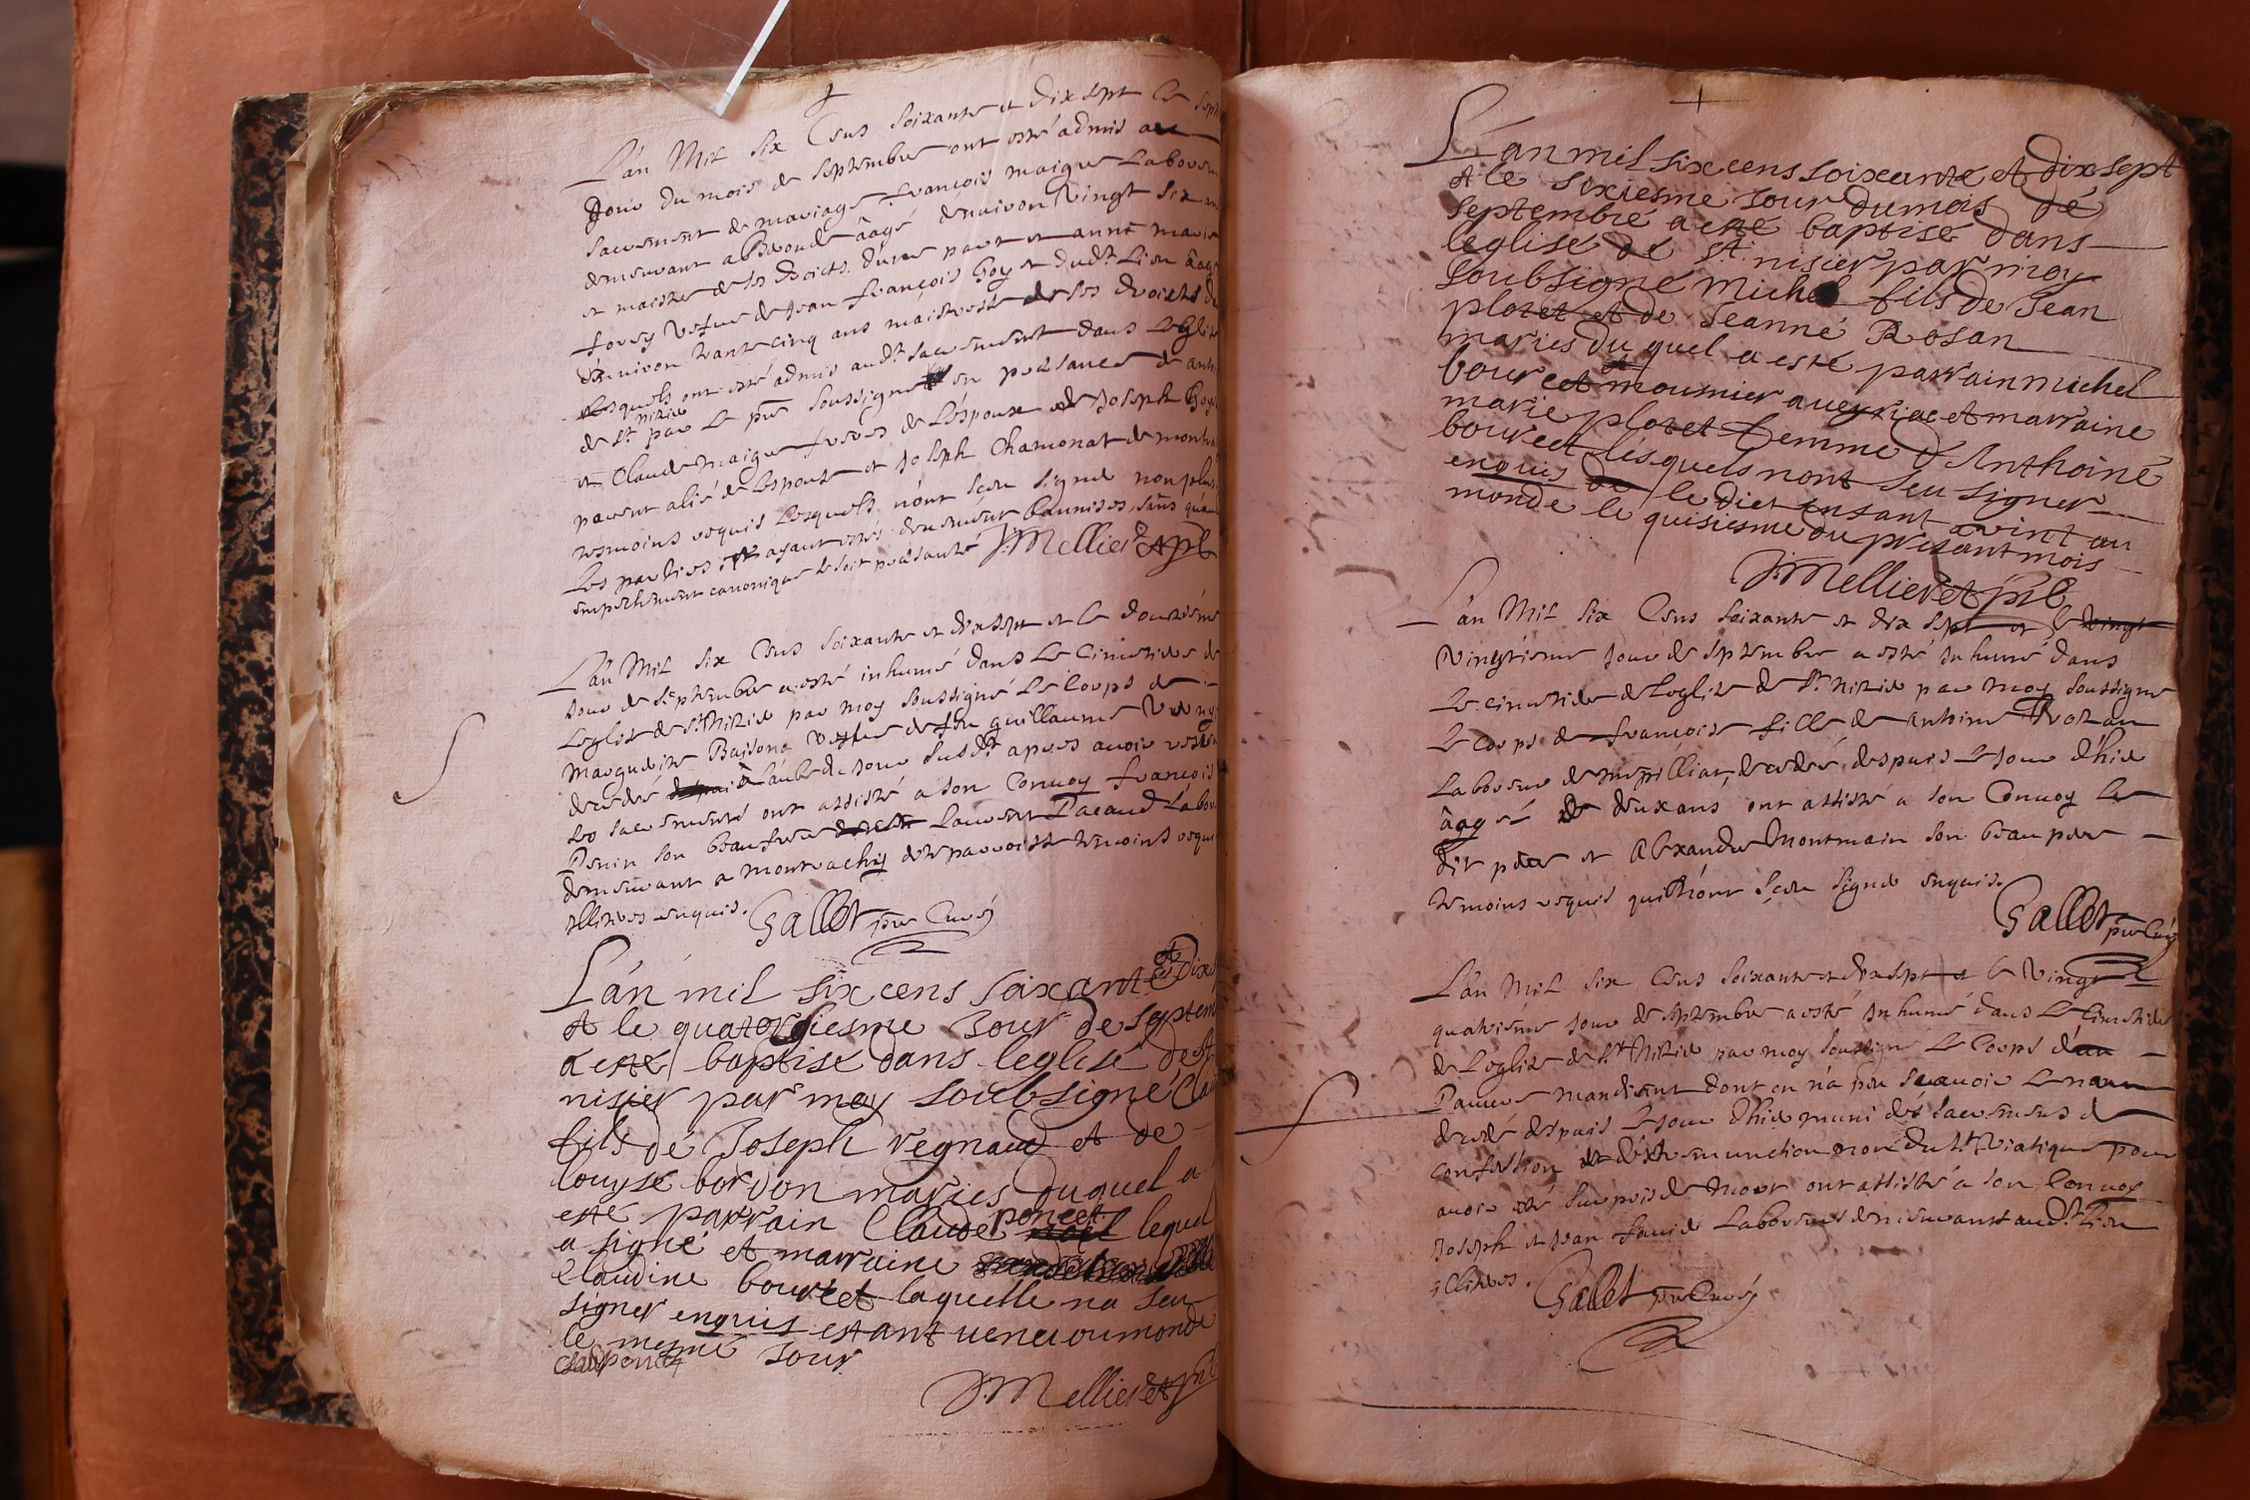 L'an Mil six Cens soixante et dix sept le
Jour du mois de septembre ont esté admis au
sacrement de mariage françois maigre Laboureur
demeurant a aâgé denviron vingt six
et maistre de ses droicts d'une part et anne
vefve de Jean françois Goy dud.t Lieu âagé
d'environ trante cinq ans maistresse de ses droicts
lesquels ont esté admis aud.t sacrement dans L'Eglise
de s.t nizie par le pre soussigné en presance de
et Claude maigre freres de L'espoux de Joseph Goy
parent alié de Lespouse et Joseph Chamonat de
temoins requis Lesquels n'ont sceu signé non plus
Les parties ayant estés deuement bannises sans
empechement canonique se soit presanté JMellieret pb
L'an Mil six Cens soixante et dixsept et le douziéme
Jour de septembre a esté inhumé dans Le Cimetiere de
Leglise de S.t Nizie par moy soussigné Le Corps de
Marguerite vefve de feu guillaume
decedé a l'aube du Jour susd.t apres avoir
les sacrements ont assisté a son Convoy françois
Perin son beaufrere Laurent Pacaud
demeurant a montrachy dete parroisse temoins
illitres enquis. Gallet pre Curé
L'an mil six cens soixante et dix
et le quatorsiesme Jour de septem
a esté baptise dans leglise de st
nisier par moy soubsigné
fils de Joseph regnaud et de
louyse bordon maries duquel a
esté parrain Claude poncet lequel
a signé et marraine
Claudine bourcet laquelle na seu
signer enquis estant uenu au monde
le mesme Jour
JMellieret pb
L'an mil six cens soixante et dix sept
et le sixiesme Jour du mois de
septembre a esté baptisé dans
leglise de St. nisier par moy
soubsigné Michel fils de Jean
plotet et de Jeanne Rosan
maries du quel a esté parrain michel
bourcet mousnier a ueyriac et marraine
marie plotet femme d'Anthoine
bourcet lesquels nont seu signer
enquis le dict ensant vint au
monde le quisiesme du presant mois
JMellieret pb
L'an Mil six Cens soixante et dix sept et le vingt
vingtiéme jour de septembre a esté Inhumé dans
Le cimetiere de Leglise de S.t Nizie par moy soussigné
Le Corps de françoise fille de Antoine Rozan
Laboureur de decedé despuis Le jour d'hie
âagée de deux ans ont assisté a son Convoy Le
dit pere et Alexandre Montmain son beau pere
temoins requis qui n'ont sceu signé enquis.
Gallet pre Curé
L'an Mil six Cens soixante et dixsept et le vingt
quatrieme jour de septembre a esté Inhumé dans Le Cimetiere
de Leglise de S.t Nizie par moy soussigné Le Corps d'un
Pauvre mandiant dont on n'a peu scavoir Le nom
decedé despuis Le jour d'hie muni des sacremens de
confession et d'extremunction non du S.t Viatique pour
avoir esté surpris de Mort ont assisté a son Convoy
Joseph et Jean Laboureurs demeurant aud.t Lieu
illitres. Gallet pre Curé